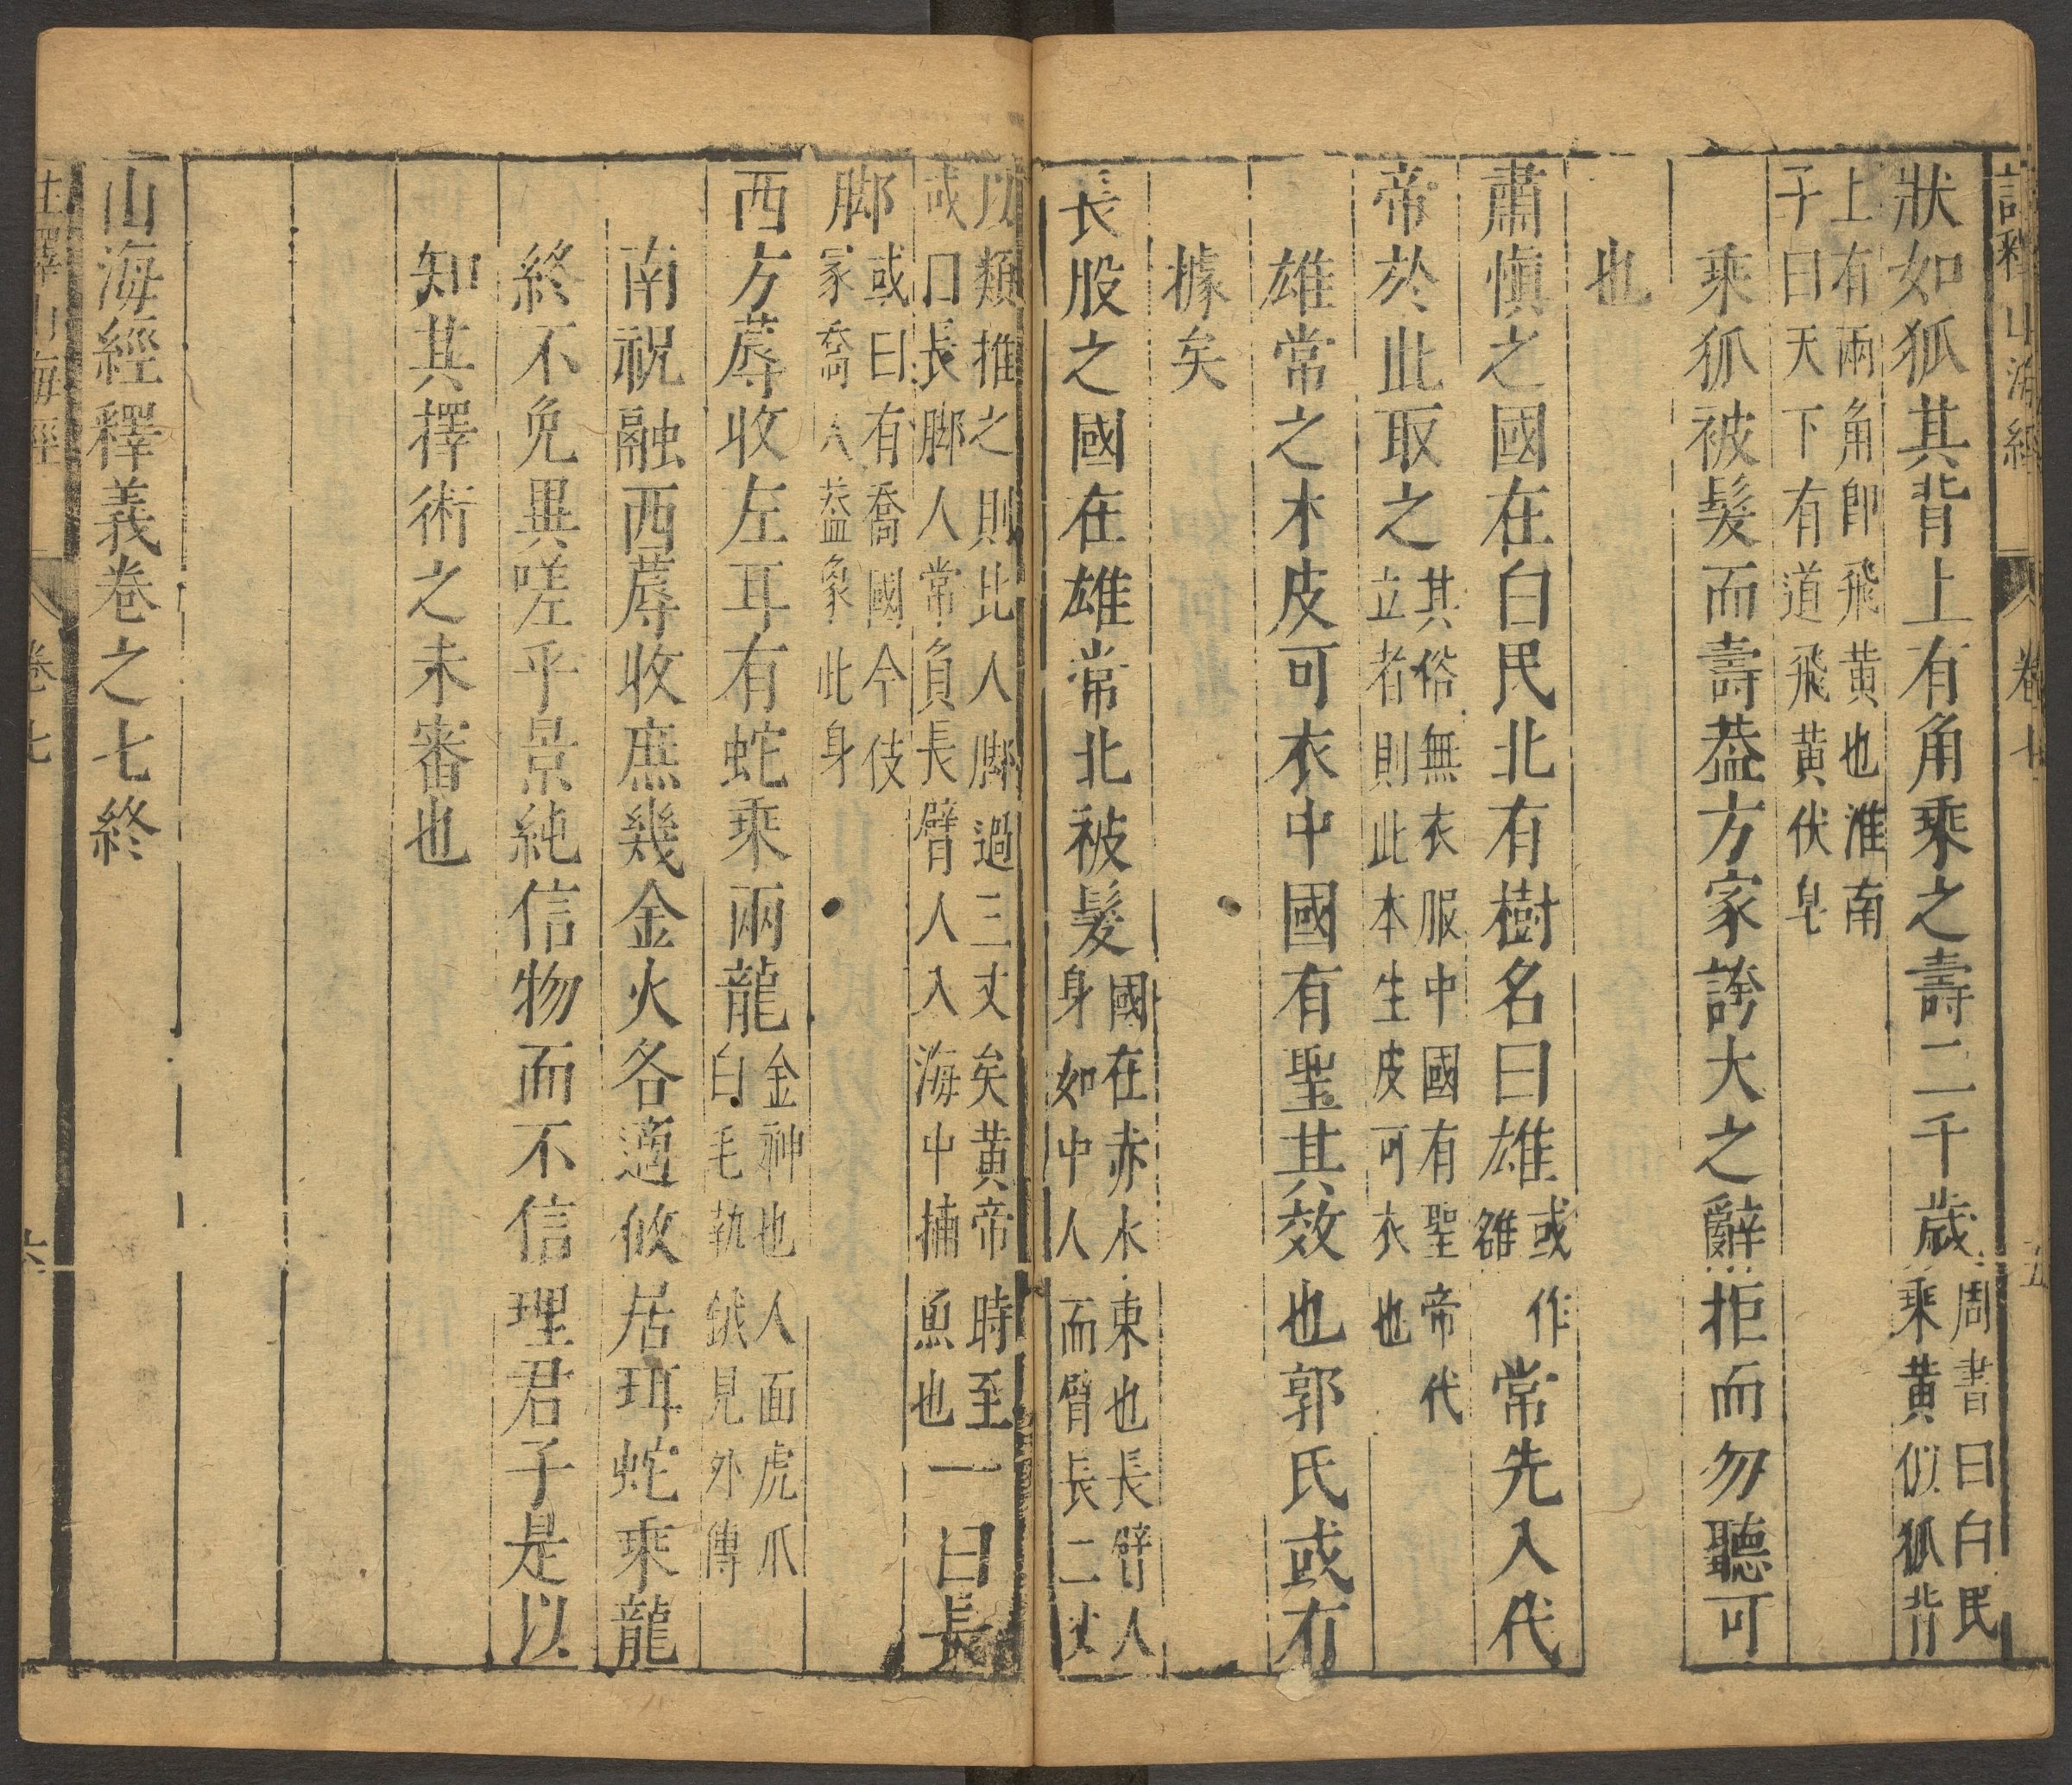 註釋山海經 卷七 五
狀如狐其背上有角乘之壽二千歲周書曰白民乘黃似狐背
上有兩角卽飛黃也淮南子曰天下有道飛黃伏皁
乘狐被髮而壽葢方家誇大之辭拒而勿聽可
也
肅慎之國在白民北有樹名曰雄或作雒常先入代
帝於此取之其俗無衣服中國有聖帝代立者則此木生皮可衣也
雄常之木皮可衣中國有聖其效也郭氏或有
據矣
長股之國在雄常北被髮國在赤水東也長臂人身如中人而臂長二丈
以類推之則此人脚過三丈矣黃帝時至或曰長脚人常負長臂人入海中捕魚也一曰長
脚或曰有喬國今伎家喬人葢象此身
西方蓐收左耳有蛇乘兩龍金神也人面虎爪白毛執鉞見外傳
南祝融西蓐收庶幾金火各適攸居珥蛇乘龍
終不免異嗟乎景純信物而不信理君子是以
知其擇術之未審也
山海經釋義卷之七終
註釋山海經 卷七 六